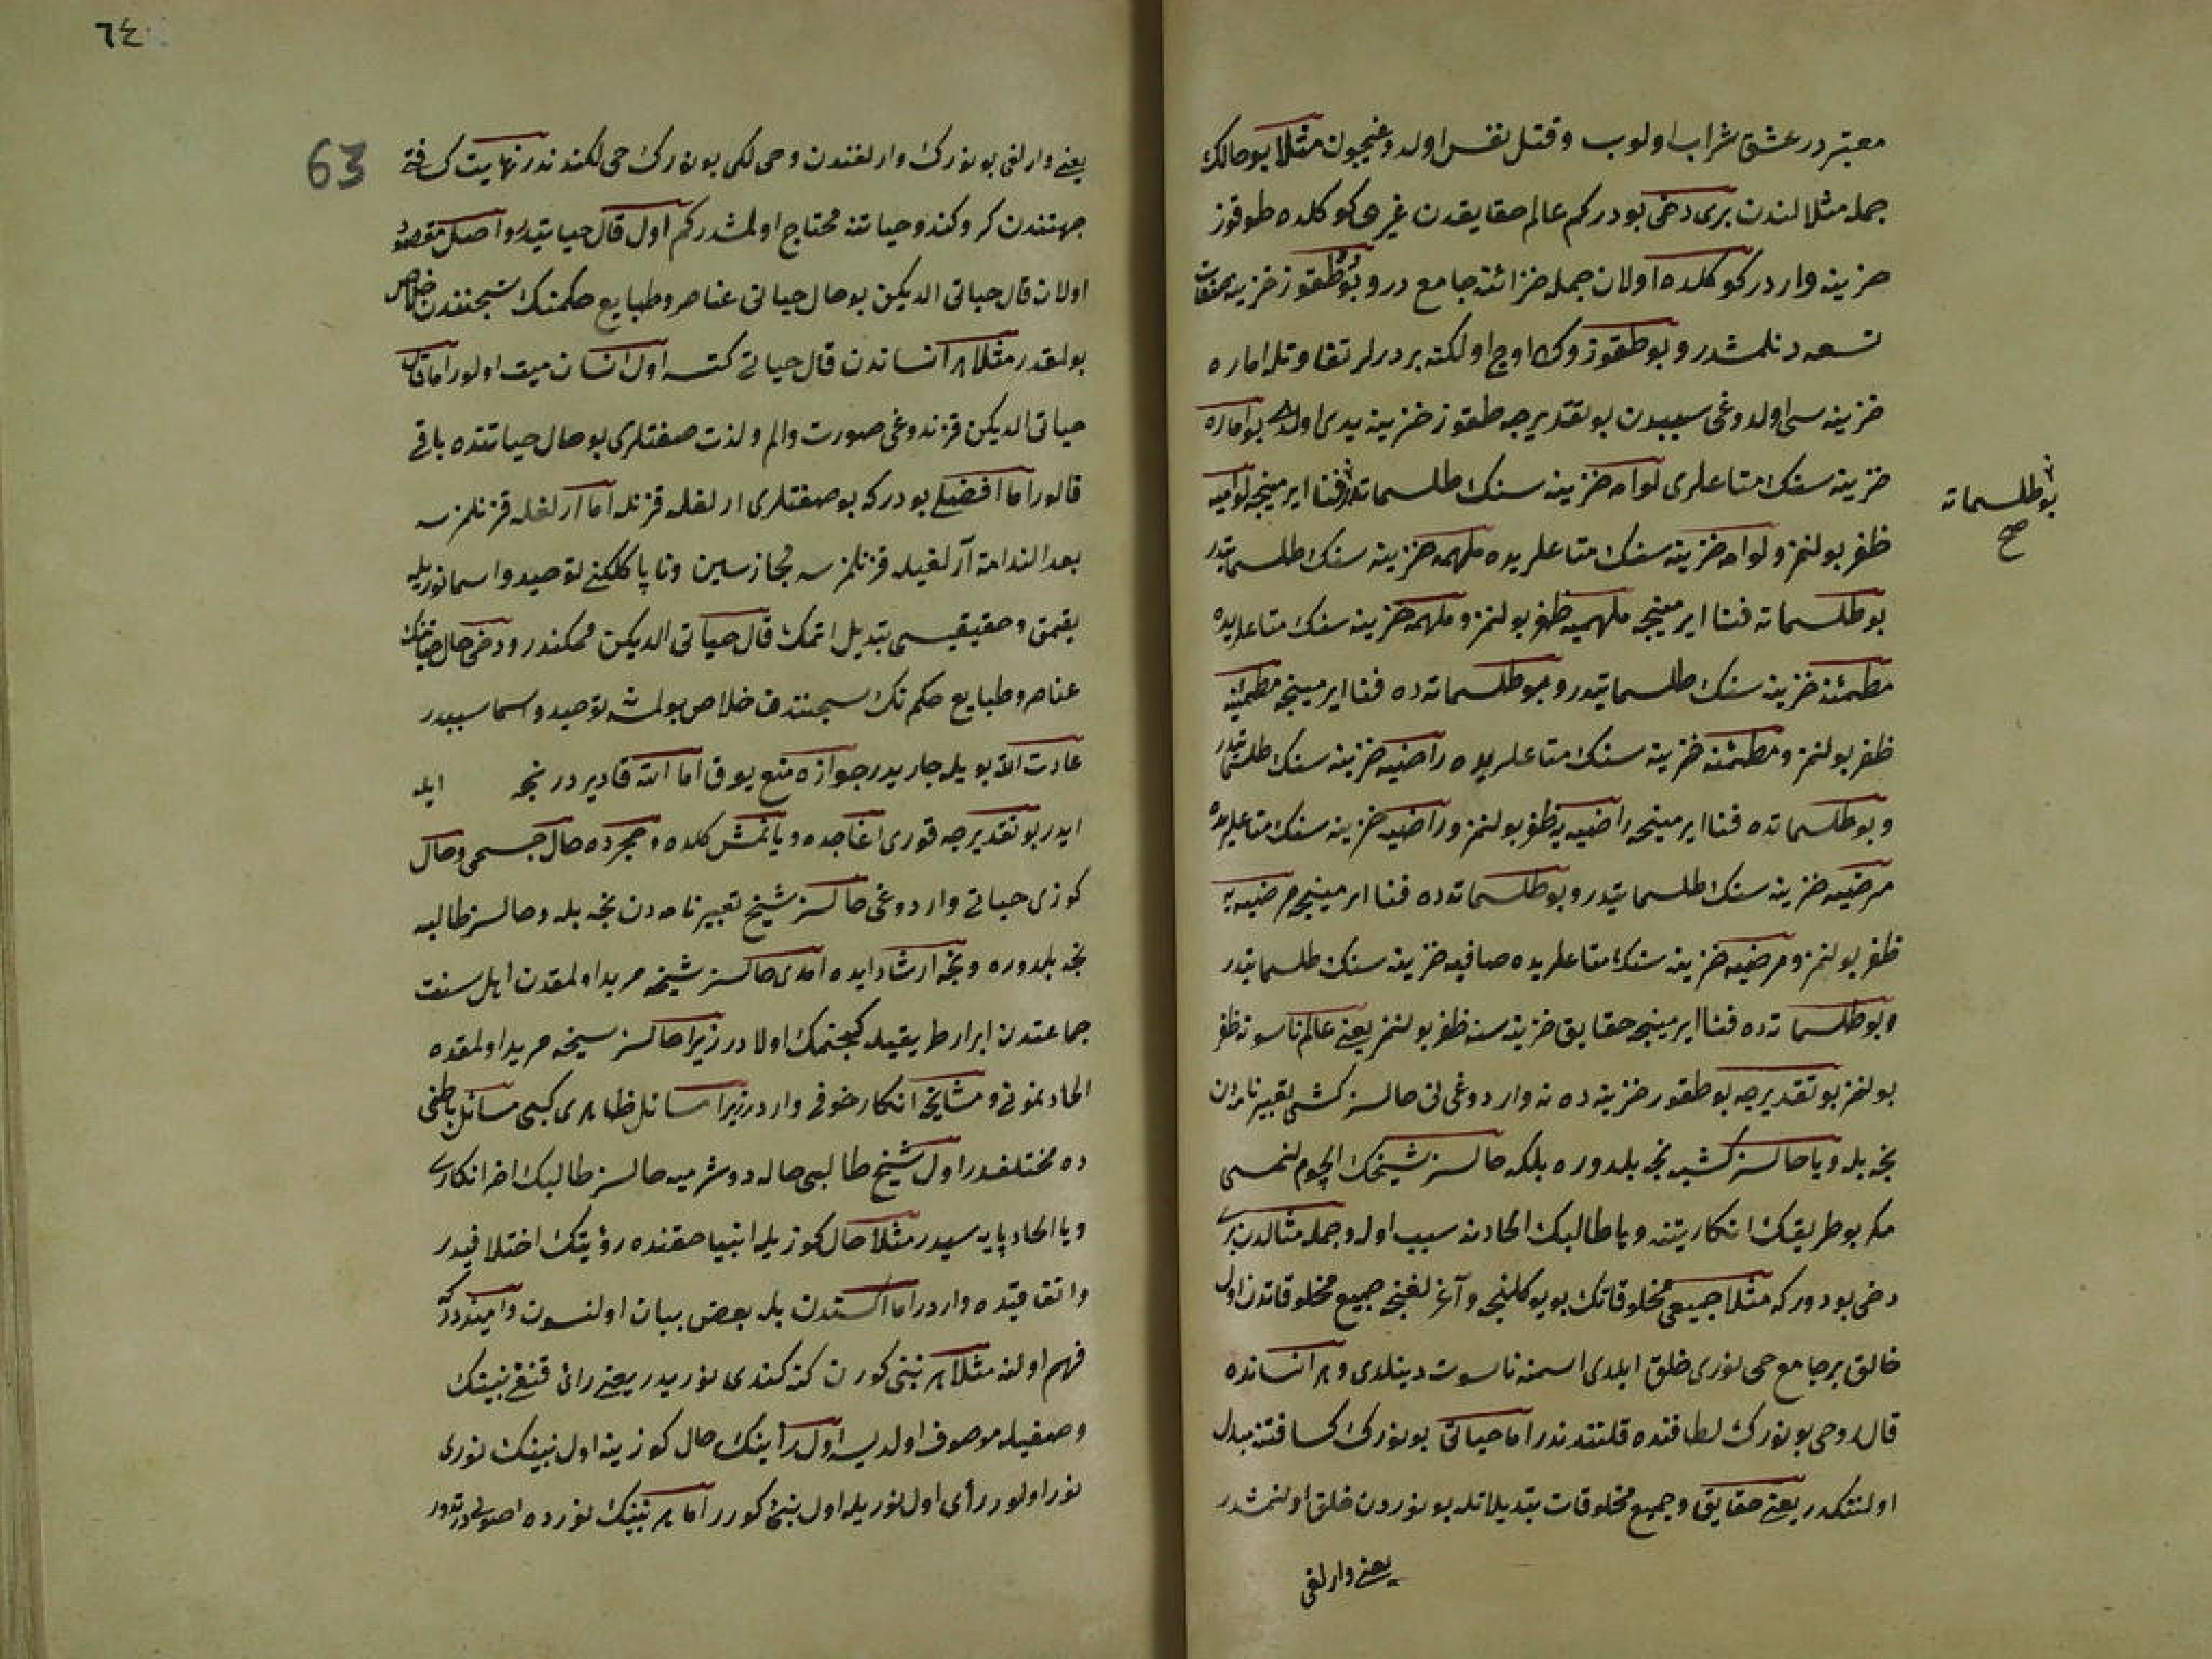 معتبردر عشق شراب اولوب وقتل نفس اولدوغیچون مثلا بو حالك
جمله مثاللرندن بری دخی بودر کم عالم حقایقدن غیری کوکلده طوقوز
خزینه واردر کوکلده اولان جمله خزائنه جامع در و بو طقوز خزینه
تسعه دنلمشدر و بو طقوزوك اوچ اولکنه بر درلر تفاوتله اماره
خزینه سی اولدوغی سببدن بو تقدیرجه طقوز خزینه یدی اولدی بو اماره
خزینه سنك متاعلری لوامه خزینه سنك طلسماتیدر فنا ایرمینجه لوامیه
ظفر بولنمز و لوامه خزینه سنك متاعلریده ملهمه خزینه سنك طلسماتیدر
بو طلسماته فنا ایرمینجه ملهمیه ظفر بولنمز و ملهمه خزینه سنك متاعلریده
مطمئنه خزینه سنك طلسماتیدر و بو طلسماته ده فنا ایرمینجه مطمئنیه
ظفر بولنمز و مطمئنه خزینه سنك متاعلریده راضیه خزینه سنك طلسماتیدر
و بو طلسماتده فنا ایرمینجه راضیه یه ظفر بولنمز و راضیه خزینه سنك متاعلریده
مرضیه خزینه سنك طلسماتیدر و بو طلسماته ده فنا ایرمینجه مرضیه یه
ظفر بولنمز و مرضیه خزینه سنك متاعلریده صافیه خزینه سنك طلسماتیدر
و بو طلسماته ده فنا ایرمینجه حقایق خزینه سنه ظفر بولنمز یعنی عالم ناسوته ظفر
بولنمز بو تقدیرجه بو طقوز خزینه ده نه واردوغی نی حالسز کشی تعبیرنامه دن
نجه بله و یا حالسز کشیه نجه بلدوره بلکه حالسز شیخك
مکر بو طریقتك انکاریتنه و یا طالبك الحادنه سبب اوله و جمله مثالدن بری
دخی بودورکه مثلا جمیعی مخلوقاتك بویوکلنجه و آغرلغنجه جمیع مخلوقاتدن اول
خالق بر جامع حی نوری خلق ایلدی اسمنه ناسوت دینلدی و هر انسانده
قال روحی بو نورك لطافتنده قلنتدندر اما حیاتی بو نورك کسافتنه مبدل
اولنتکدر یعنی حقایق و جمیع مخلوقات تبدیلاتله بو نوردن خلق اولنمشدر
یعنی وارلغی
بو طلسماته
صح
٦٤
63
یعنی وارلغی بو نورك وارلغندن و حی لکی بو نورك حی لکندندر نهایت کسافة
جهتندن کرو کندو حیاتنه محتاج اولمشدر کم اول قال حیاتیدر و اصل مقصود
اولان قال حیاتی الدیکن بو حال حیاتی عناصر و طبایع حکمنك سجنندن خلاص
بولمقدر مثلا هر انساندن قال حیاتی کتسه اول انسان میت اولور اما قال
حیاتی الدیکن قزندوغی صورت و الم و لذت صفتلری بو حال حیاتنده باقی
قالور اما افضلی بودرکه بو صفتلری ارلغله قزنله اما ارلغله قزنلمزسه
بعد الندامة آرلغیله قزنلمزسه مجازسین و ناپاکلکنی توحید و اسما نوریله
یقمق و حقیقیسی تبدیل اتمك قال حیاتی الدیکن ممکندر و دخی حال حیاتنك
عناصر و طبایع حکم نك سجنندن خلاص بولمسنه توحید و اسما سببدر
عادت الله بویله جاریدر جوازه منع یوق اما الله قادیردر نجه ایله
ایدر بو تقدیرجه قوری اغاجده و یانمش کلده و حجرده حال جسمی و حال
کوزی حیاتی واردوغی حالسز شیخ تعبیرنامه دن نجه بله و حالسز طالبه
نجه بلدوره و نجه ارشاد ایده امدی حالسز شیخه مرید اولمقدن اهل سنت
جماعتدن ابرار طریقیله کچنمك اولادر زیرا حالسز شیخه مرید اولمقده
الحاد خوفی و مشایخی انکار خوفی واردر زیرا مسائل ظاهری کبی مسائل باطنی
ده مختلفدر اول شیخ طالبی حاله دوشرمیه حالسز طالبك اخر انکاری
و یا الحاد پایه سیدر مثلا حال کوزیله انبیا حقنده رؤیتك اختلافیدر
و اتفاقیده واردر اما بله بعض بیان اولنسون
فهم اولنه مثلا هر نبینی کورن کنه کندی نوریدر یعنی رائی قنغی نبینك
وصفیله موصوف اولدیسه اول رأینك حال کوزینه اول نبینك نوری
نور اولور رأی اول نوریله اول نبینی کورر اما هر نبینك نورده اصولی